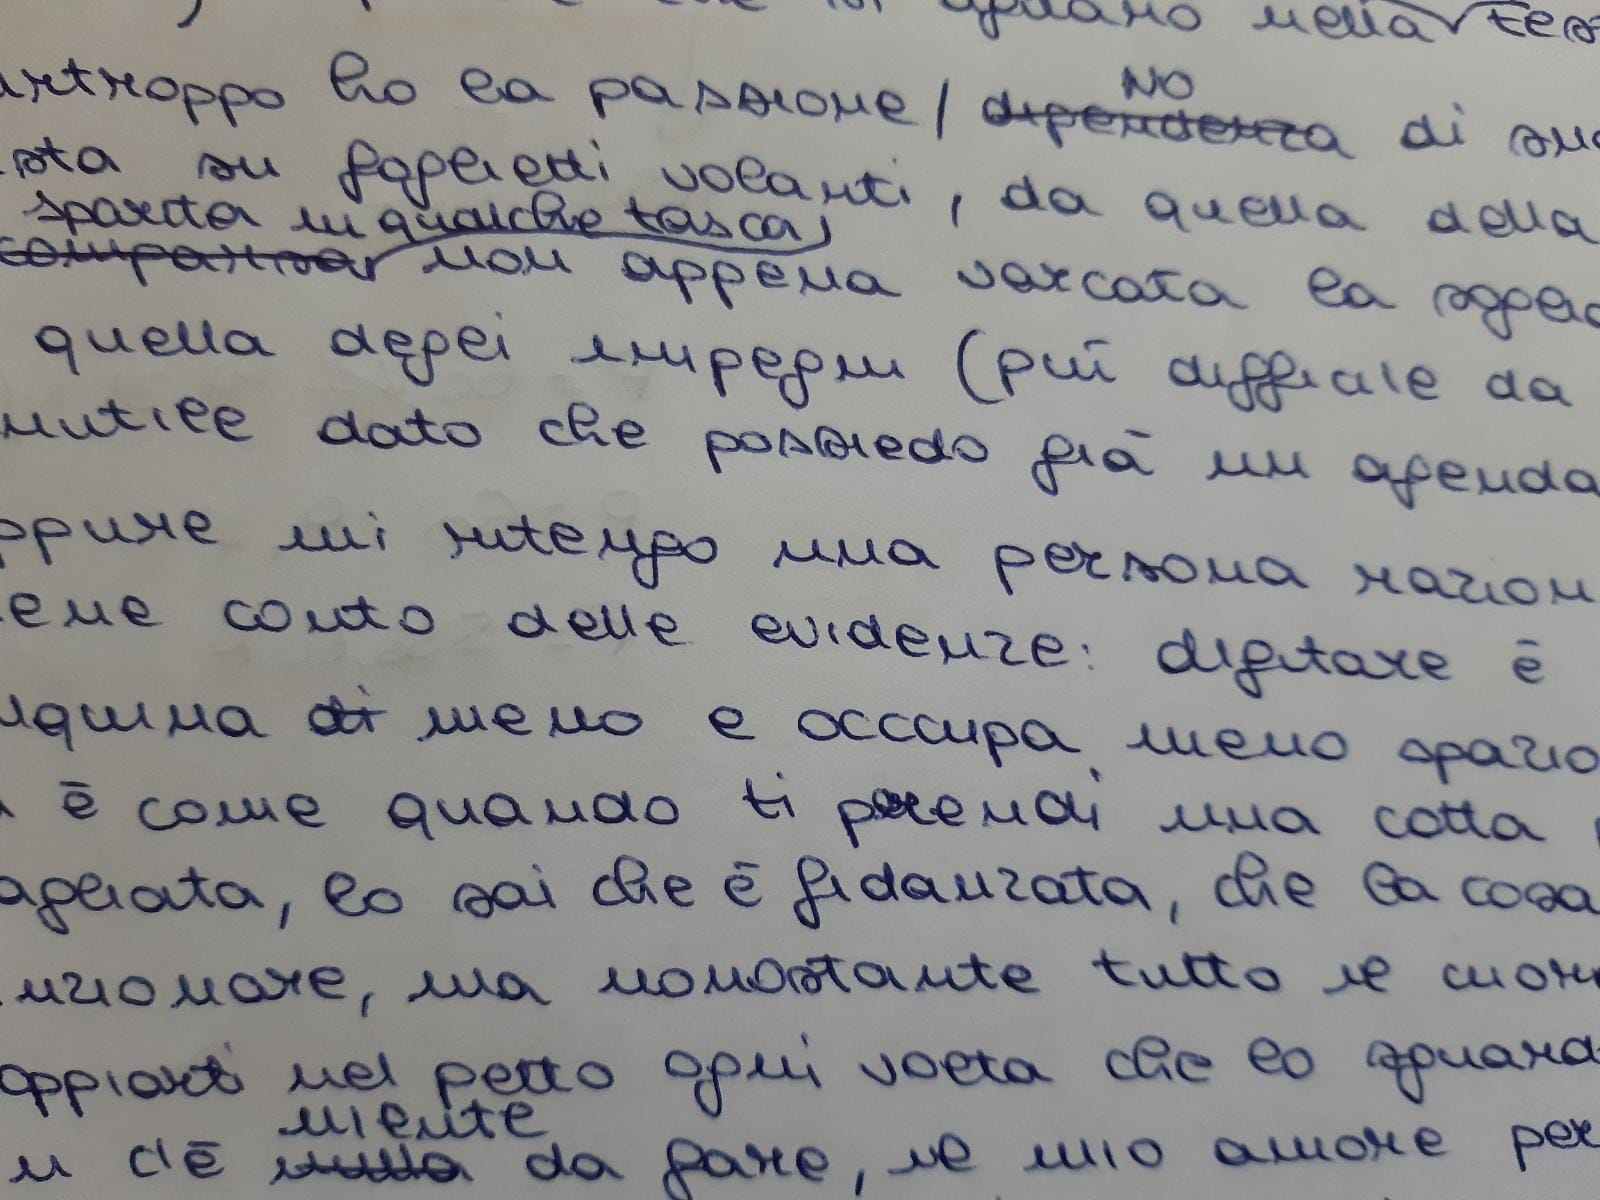 nella tes
urtroppo ho la passione / dipendenza NO di
sta su foglietti volanti, da quella della
sparita in qualche tasca,
comparsa non appena varcata la soglia
quella degli impegni (più difficile da
nutile dato che possiedo già un agenda
ppure mi ritengo una persona razion
iene conto delle evidenze: digitare è
nquina di meno e occcupa meno spazio
è come quando ti prendi una cotta
agliata, lo sai che è fidanzata, che la cosa
nzionare, ma nonostante tutto il cuore
oppiarti nel petto ogni volta che lo sguard
niente
n c'è nulla da fare, il mio amore per